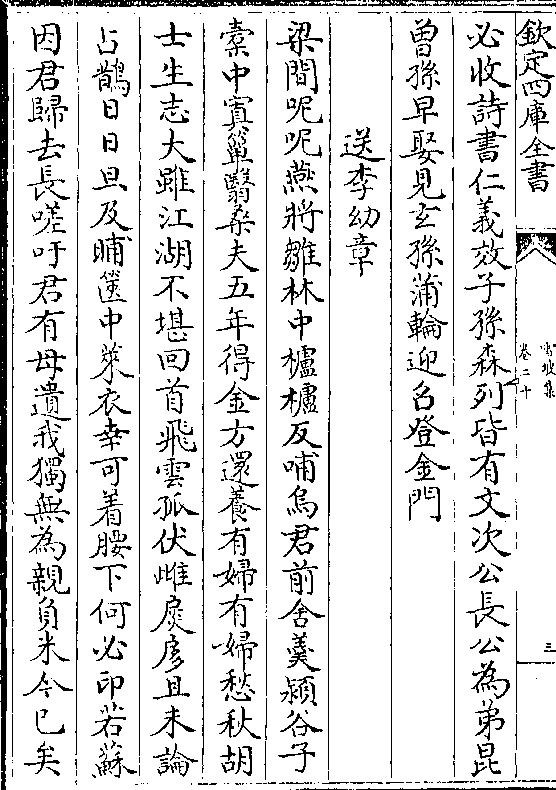 欽定四庫全書
雪坡集
卷二十
三
必收詩書仁義效子孫森列皆有文次公長公為弟昆
曽孫早娶見玄孫蒲輪迎召登金門
送李幼章
梁間呢呢燕將雛林中櫨櫨反哺烏君前舍羮潁谷子
橐中寘簞翳桑夫五年得金方還養有婦有婦愁秋胡
士生志大雖江湖不堪回首飛雲孤伏雌扊扅且未論
占鵲日日旦及晡篋中萊衣幸可着腰下何必印若蘇
因君歸去長嗟吁君有母遺我獨無為親負米今已矣